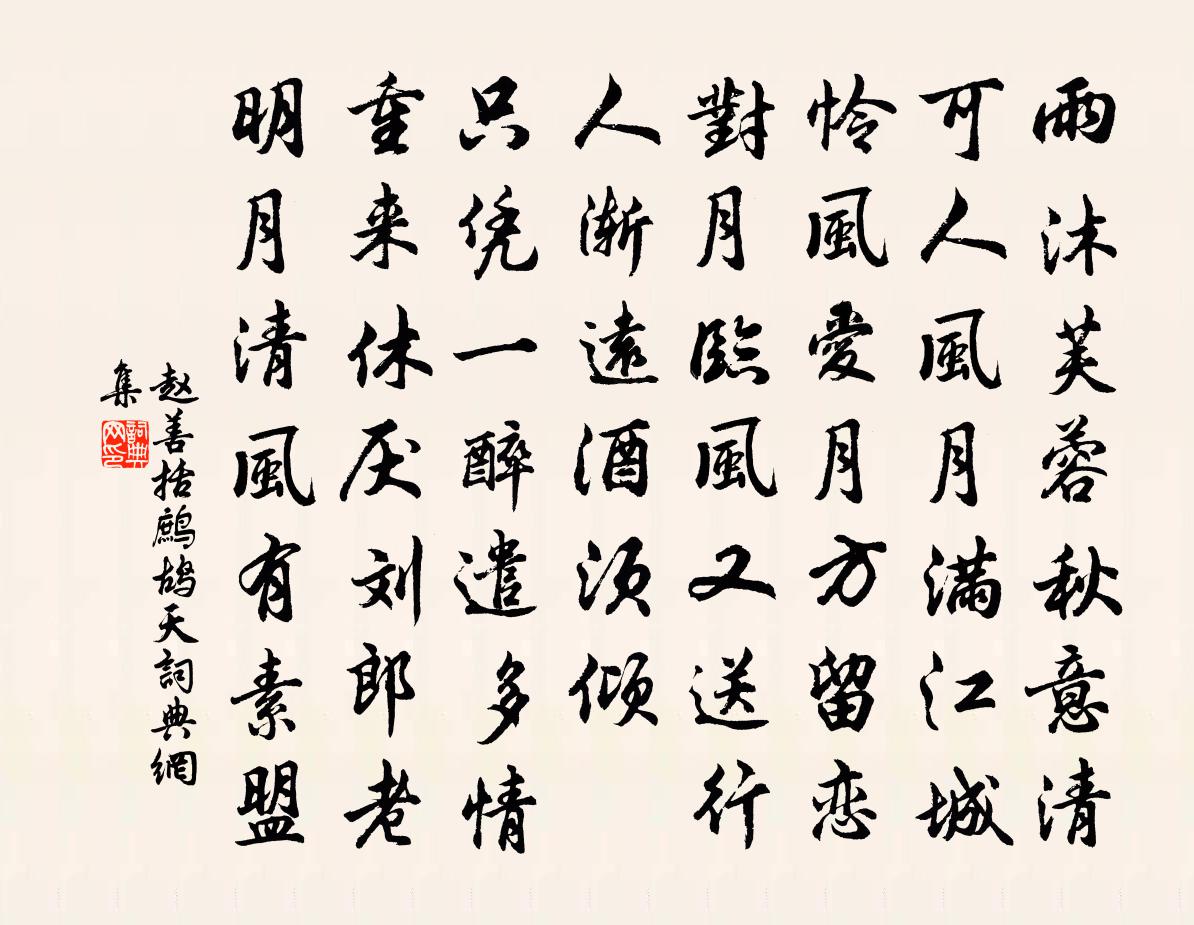 雨沐芙蓉秋意清
可人風月滿江城
怜風愛月方留恋
對月臨風又送行
人渐遠酒须倾
只凭一醉遣多情
重来休厌刘郎老
明月清風有素盟
赵善括鹧鸪天詞典網
集
詞典网印